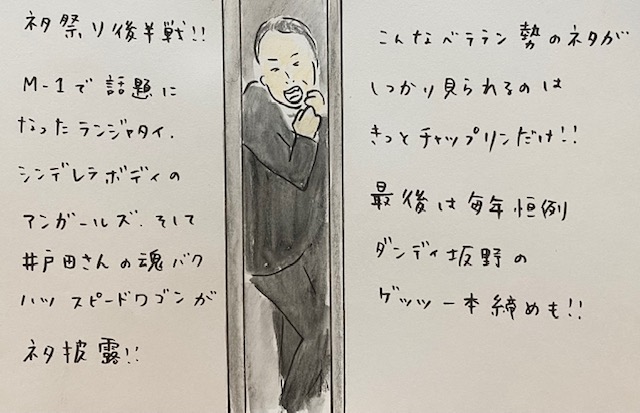 ネタ祭り後半戦!!
M-1で話題に
なったランジャタイ.
シンデレラボディの
アンガールズ.そして
井戸田さんの魂バク
ハツ スピードワゴンが
ネタ披露!!
こんなベテラン勢のネタが
しっかり見られるのは
きっとチャップリンだけ!!
最後は毎年恒例
ダンディ坂野の
ゲッツ一本締めも!!